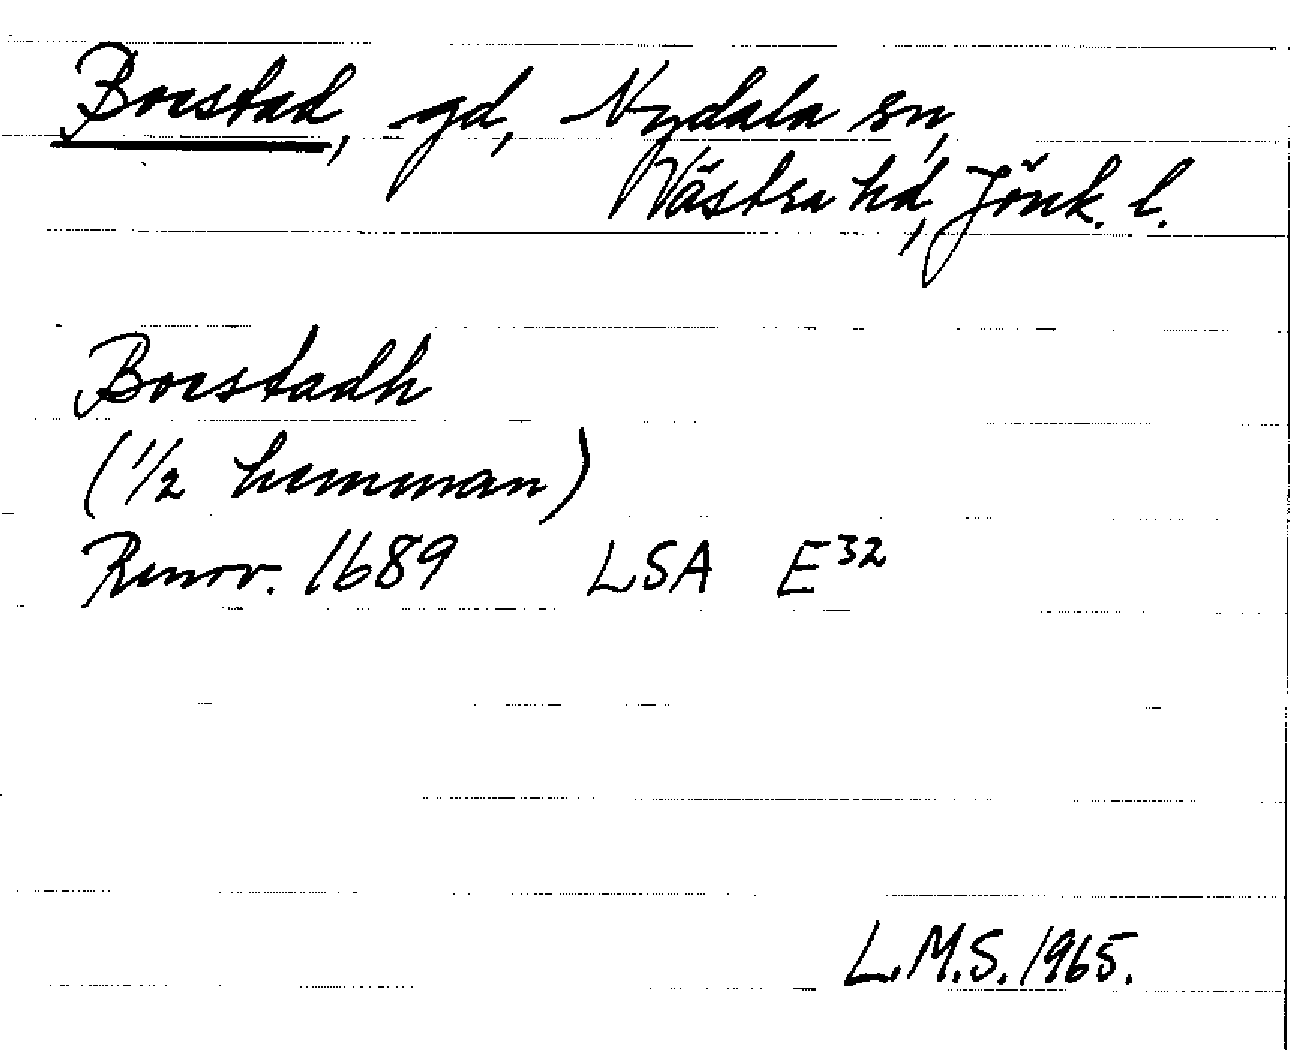 Borstad, gd, Nydala sn,
Västra hd, Jönk. l.
Borstadh
(1/2 hemman)
Renov. 1689 LSA E³²
L.M.S. 1965.